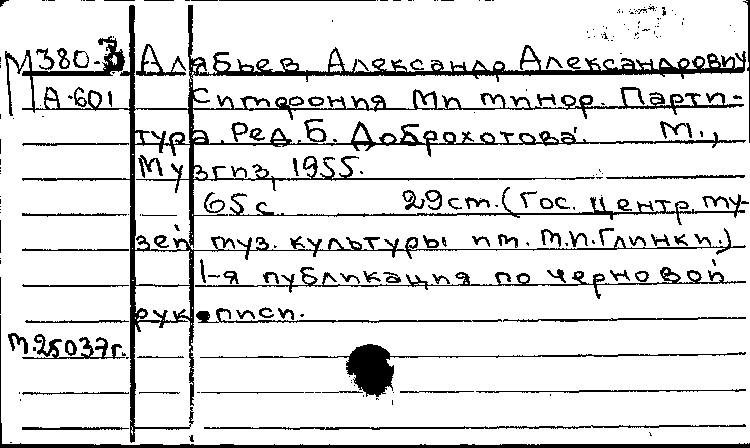 М380-3 Алябьев, Александр Александрович
А-601 Симфония Ми минор. Парти-
тура. Ред. Б. Доброхотова. М.,
Музгиз, 1955.
65 с. 29 см. (Гос. центр. му-
зей муз. культуры им. М.И.Глинки.)
1-я публикация по черновой
рукописи.
М.25037г.